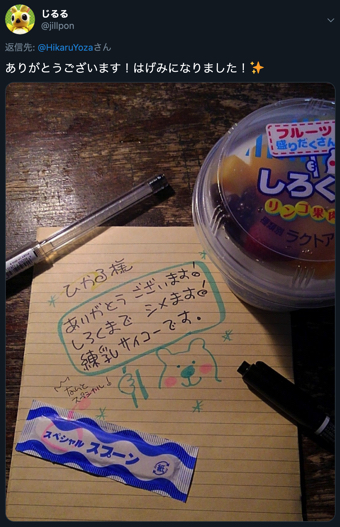 じるる
@jillpon
返信先: @HikaruYozaさん
ありがとうございます！はげみになりました！✨
フルーツ
盛りだくさん
しろく
リンゴ果肉
ラクトア
ひかる様
ありがとうございます!
しろくまで シメます!
練乳サイコーです。
なんと
スペシャル♪
スペシャル スプーン